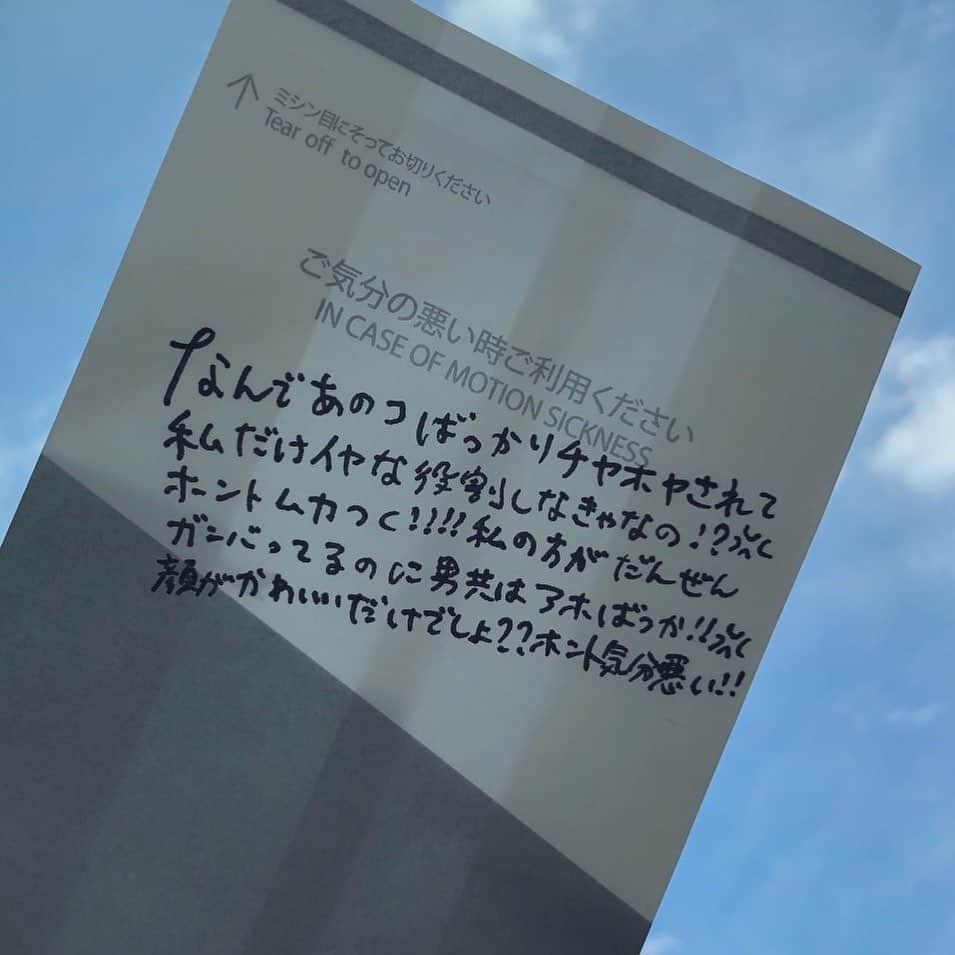 ミシン目にそってお切りください
Tear off to open
ご気分の悪い時ご利用ください
IN CASE OF MOTION SICKNESS
なんであのコばっかりチヤホヤされて
私だけイヤな役割しなきゃなの!?
ホントムカつく!!!!私の方がだんぜん
ガンバってるのに男共はアホばっか!!
顔がかわいいだけでしょ??ホント気分悪い!!